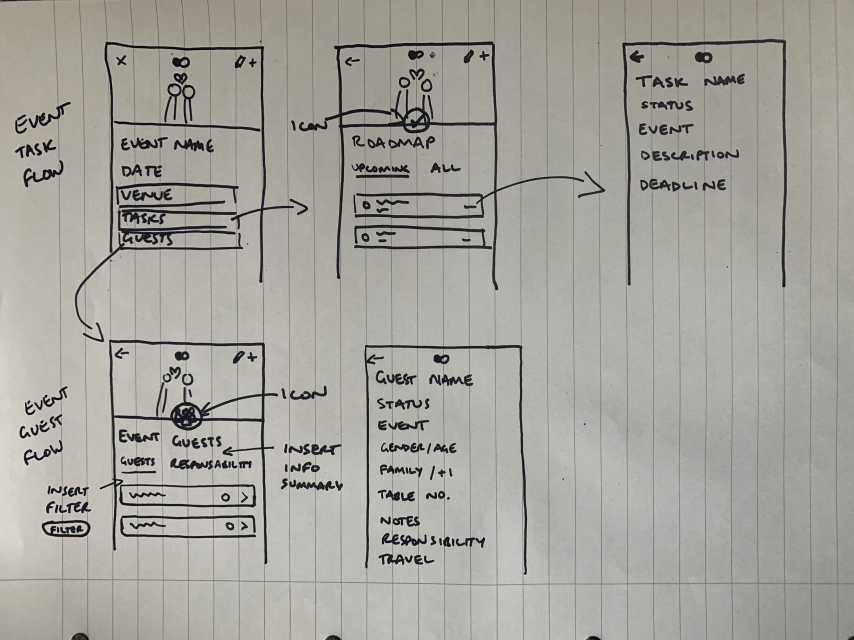 EVENT
TASK
FLOW
EVENT NAME
DATE
VENUE
TASKS
GUESTS
ICON
ROADMAP
UPCOMING ALL
TASK NAME
STATUS
EVENT
DESCRIPTION
DEADLINE
EVENT
GUEST
FLOW
ICON
EVENT GUESTS
GUESTS RESPONSABILITY
INSERT
INFO
SUMMARY
INSERT
FILTER
FILTER
GUEST NAME
STATUS
EVENT
GENDER/AGE
FAMILY /+1
TABLE NO.
NOTES
RESPONSIBILITY
TRAVEL